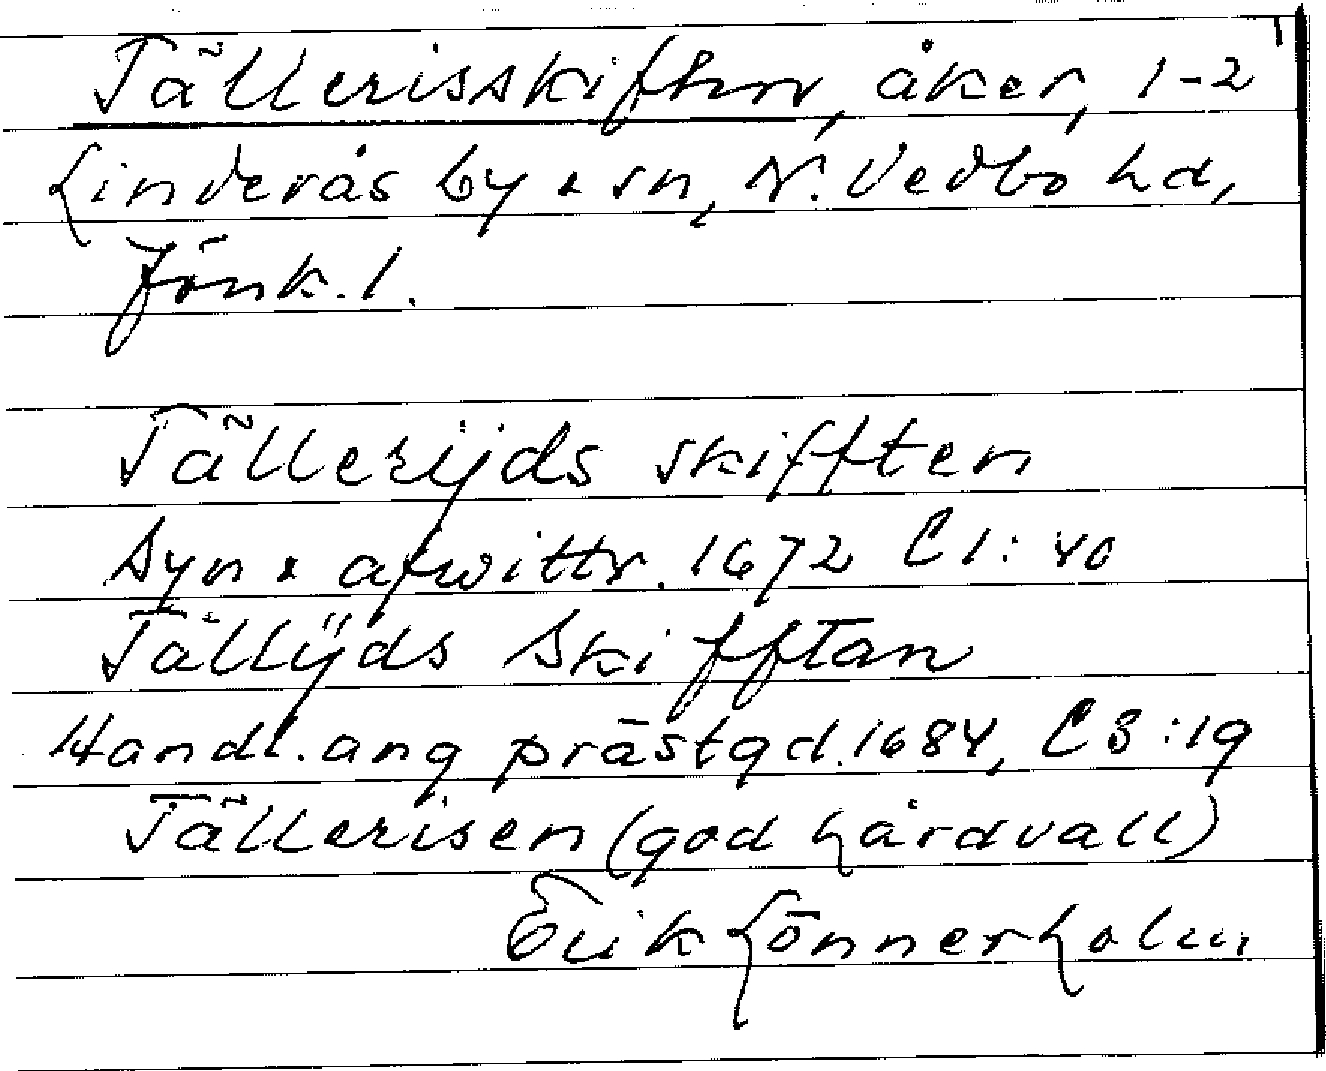 Tällerisskiften, åker, 1-2
Linderås by & sn, N. Vedbo hd,
Jönk. l.
Tällerijds skifften
Syn & afwittr. 1672 C1:40
Tällijds Skifftan
Handl. ang prästgd. 1684, C3:19
Tällerisen (god hårdvall)
Erik Lönnerholm